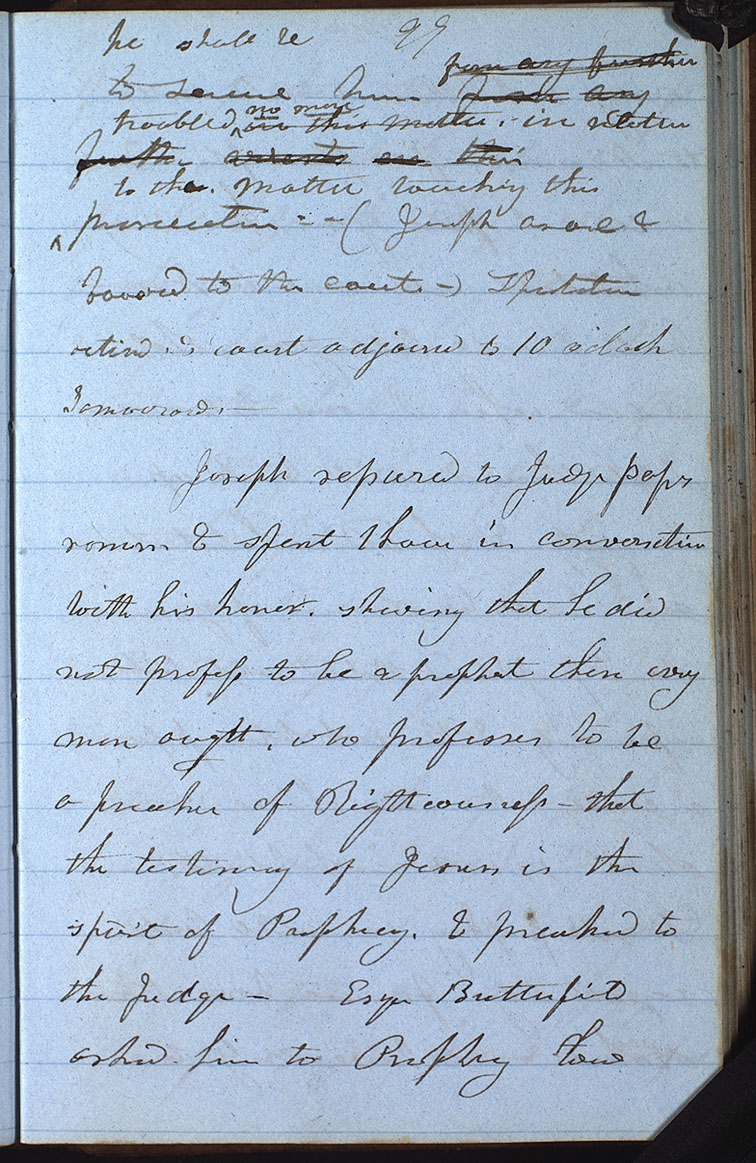 he shall be 99
from any further
to secure him from any
troubled, no more in this matter. in relation
further arrests on this
to the. matter touching this
prosecution - - ( Joseph arose &
bowed to the court -) Spectators
retired. & court adjourned to 10 o clock
Tomorrow. -
Joseph repaired to Judge popes
rooms & spent 1 hour in conversation
with his honor. shewing that he did
not profess to be a prophet then every
man ought. who professes to be
a preacher of Righteousness - that
the testimony of Jesus is the
spirit of Prophecy. & preached to
the Judge - Esqr Butterfield
asked him to Prophecy how